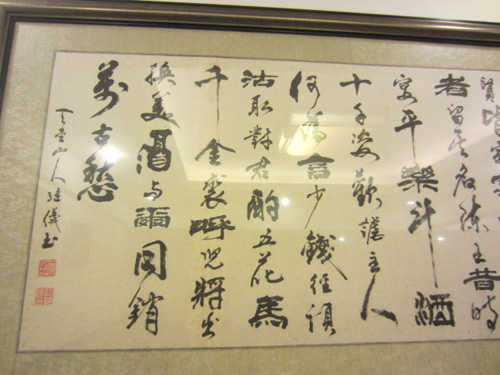 賢
者留其名陳王昔時
宴平樂斗酒
十千恣歡謔主人
何為言少錢徑須
沽取對君酌五花馬
千金裘呼兒將出
換美酒與爾同銷
萬古愁
山人